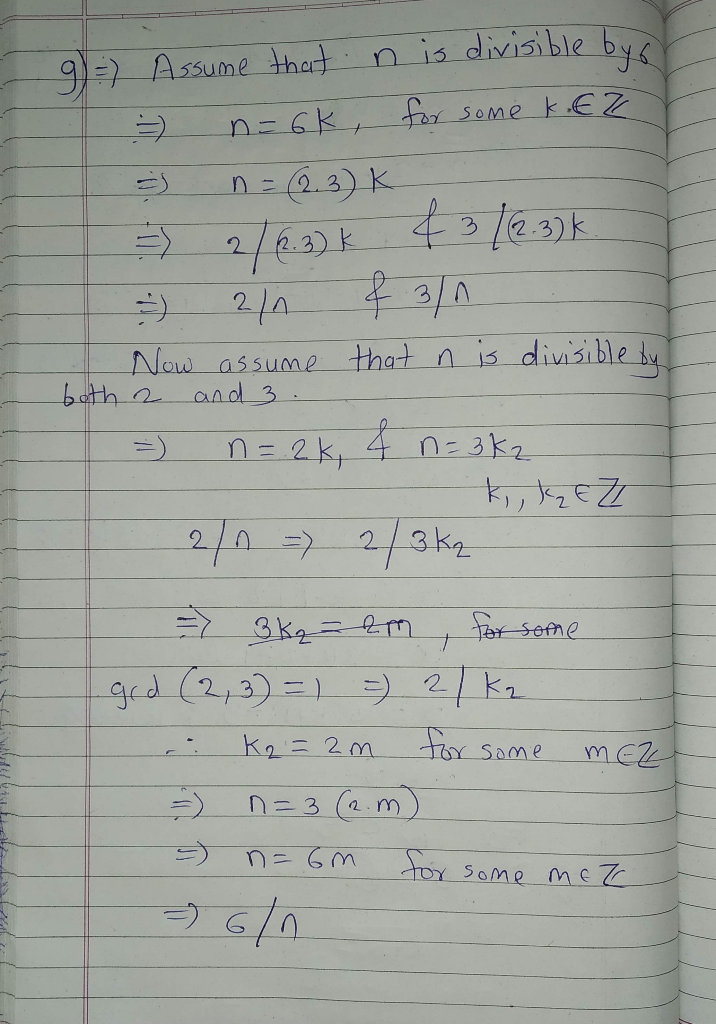 9) => Assume that n is divisible by 6
=> n = 6k, for some k ∈ ℤ
=> n = (2.3) k
=> 2/(2.3) k & 3/(2.3)k
=> 2/n & 3/n
Now assume that n is divisible by
both 2 and 3.
=> n = 2k₁ & n = 3k₂
k₁, k₂ ∈ ℤ
2/n => 2/3k₂
=> 3k₂ = 2m, for some
gcd (2,3) = 1 => 2/k₂
∴ k₂ = 2m for some m ∈ ℤ
=> n = 3 (2.m)
=> n = 6m for some m ∈ ℤ
=> 6/n